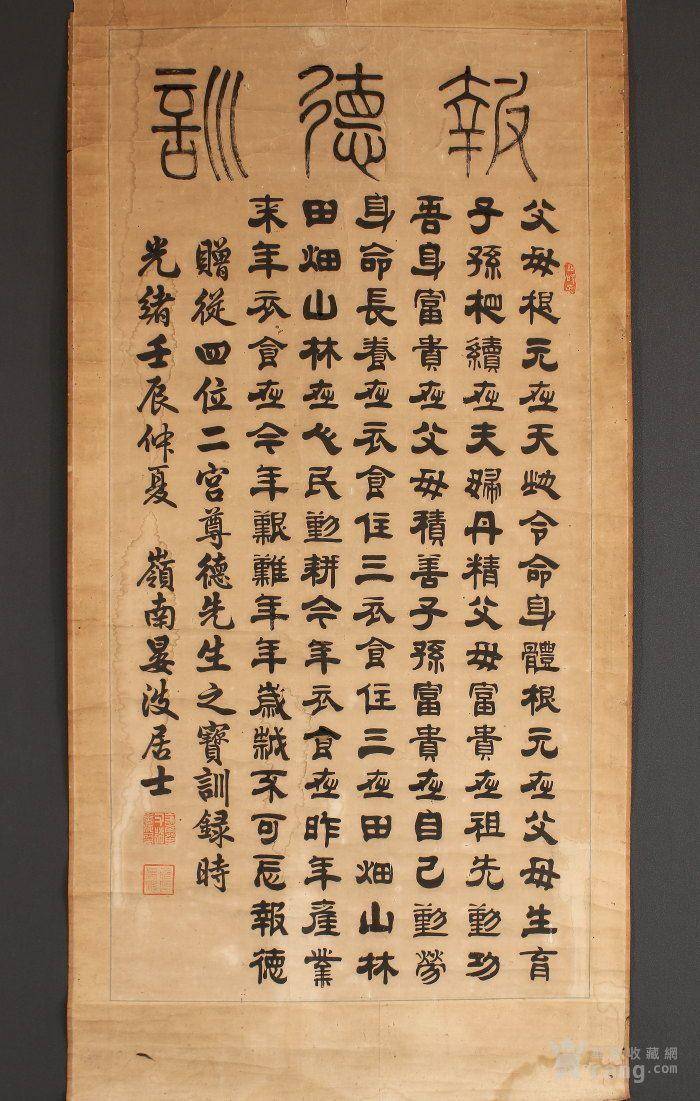 報德訓
父母根元在天地令命身體根元在父母生育
子孫相續在夫婦丹精父母富貴在祖先勤功
吾身富貴在父母積善子孫富貴在自己勤勞
身命長養在衣食住三衣食住三在田畑山林
田畑山林在人民勤耕今年衣食在昨年産業
来年衣食在今年艱難年年歳越不可忘報徳
贈從四位二宮尊德先生之寶訓録時
光緒壬辰仲夏 嶺南晏波居士
收藏網
rang.com